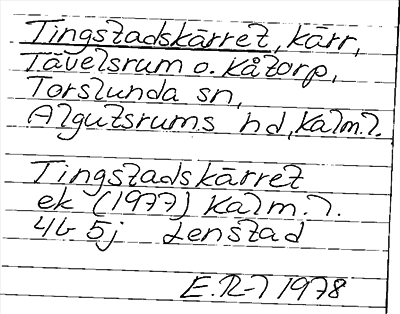 Tingstadskärret, kärr,
Tävelsrum o. Kåtorp,
Torslunda sn,
Algutsrums hd, Kalm. l.
Tingstadskärret
ek (1977) Kalm. l.
4G 5j Lenstad
E.R-l 1978